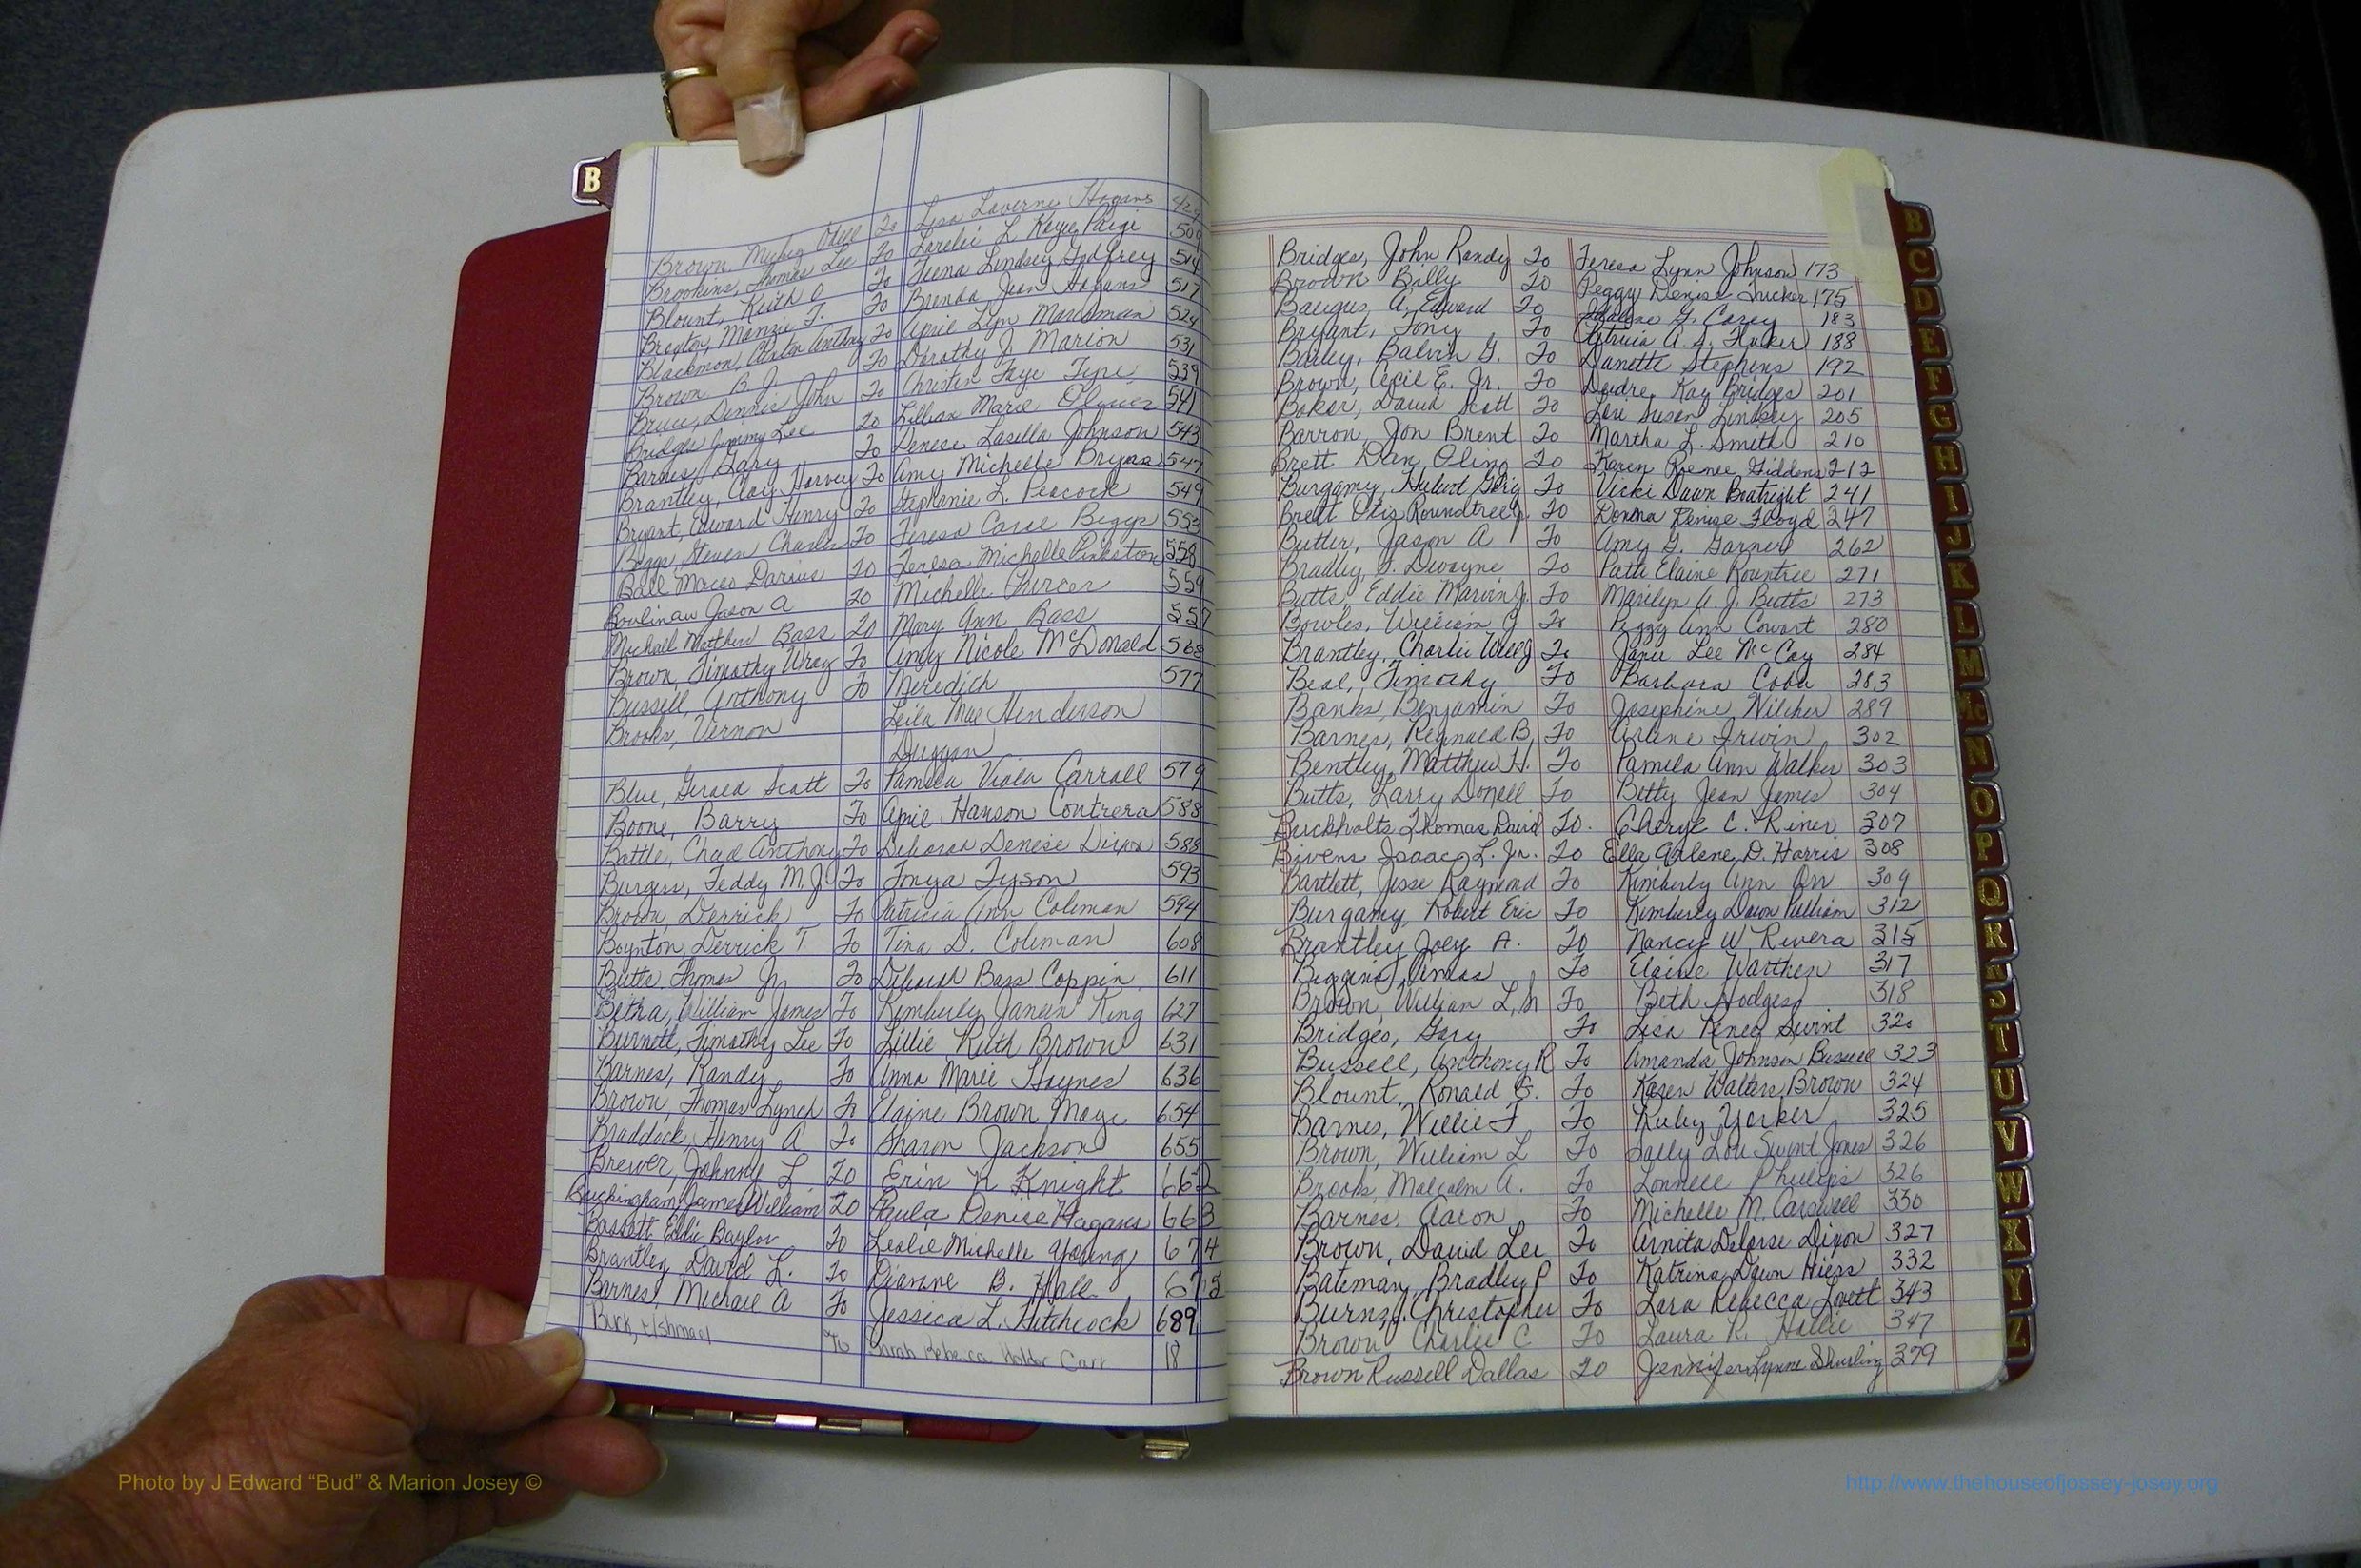 B
Brown, Odell To Lisa Laverne Hagans
Brookins, Thomas Lee To L. Kaye Paige 50
Blount, Keith O To Teena Lindsey Godfrey 514
Braxton, T. To Brenda Jean Hagans 517
Blackmon, Anthony To April Lyn 524
Brown B. J. To Dorothy J. Marion 531
Bruce, Dennis John To Christen Faye 539
Bridges Jimmy Lee To Lillian Marie Oliver 541
Barnes, Gary To Denese Johnson 543
Brantley, Clay Harvey To Amy Michelle 547
Bryant, Edward Henry To Stephanie L. Peacock 549
Beggs, Steven Charles To Teresa Carol Beggs 553
Ball Darius To Teresa Michelle Pinkston 558
Jason A To Michelle 559
Michael Matthew Bass To Mary Ann Bass 557
Brown, Timothy Wray To Amy Nicole McDonald 568
Bussell, Anthony To Meredith 577
Brooks, Vernon Leila Mae Henderson
Duggan
Blue, Gerald Scott To Pamela Viola Carroll 579
Boone, Barry To April Hanson Contrera 588
Battle, Chad Anthony To Deborah Denise Dixon 588
Burgess, Teddy M. Jr. To Tonya Tyson 593
Brown, Derrick To Patricia Ann Coleman 594
Boynton, Derrick T To Tina D. Coleman 608
Butts Thomas Jr To Deborah Bass Coppin 611
Betha, William James To Kimberly Janeen King 627
Burnett, Timothy Lee To Lillie Ruth Brown 631
Barnes, Randy To Anna Marie Haynes 636
Brown, Thomas Lynch To Elaine Brown Maye 654
Braddock, Henry A To Sharon Jackson 655
Brewer, Johnny L To Erin N Knight 662
Buckingham, James William To Paula Denise Hagans 663
Bassett Eddie Baylor To Leslie Michelle Young 674
Brantley David L. To Dianne B. Hall 675
Barnes, Michael A To Jessica L. Hitchcock 689
Buck, Eishmael To Sarah Rebecca Holder Carr 18
Bridges, John Randy To Teresa Lynn Johnson 173
Brown Billy To Peggy Denise Tucker 175
Baugus, A. Edward To G. Casey 183
Bryant, Tony To Patricia A. S. 188
Bailey, Balvin G. To Danette Stephens 192
Brown, Cecil E. Jr. To Deidre Kay Bridges 201
Baker, David Scott To Lori Susan Lindsey 205
Barron, Jon Brent To Martha L. Smith 210
Brett Dan Olin To Karen Renee Giddens 212
Burgamy, Hubert To Vicki Dawn Boatright 241
Brett Otis Roundtree Jr. To Donna Denise Floyd 247
Butler, Jason A To Amy G. Garner 262
Bradley, J. Dwayne To Patti Elaine Rountree 271
Butts, Eddie Marvin Jr. To Marilyn A. J. Butts 273
Bowles, William J To Peggy Ann Cowart 280
Brantley, Charlie To Janie Lee McCoy 284
Beal, Timothy To Barbara 283
Banks, Benjamin To Josephine Wilcher 289
Barnes, Reginald B. To Arlene Irwin 302
Bentley, Matthew H. To Pamela Ann Walker 303
Butts, Larry Donell To Betty Jean James 304
Buckholts Thomas David To. Cheryl C. Riner 307
Bivens Isaac L. Jr. To Ella Arlene D. Harris 308
Bartlett, Jesse Raymond To Kimberly Ann Orr 309
Burgamy, Robert Eric To Kimberly Dawn Pulliam 312
Brantley Joey A. To Nancy W. Rivera 315
Biggins, Amos To Elaine Warthen 317
Brown, William L, Sr To Beth Hodges 318
Bridges, Gary To Lisa Renea Swint 320
Bussell, Anthony R To Amanda Johnson Bussell 323
Blount, Ronald G. To Karen Walters Brown 324
Barnes, Willie F To Ruby Yorker 325
Brown, William L To Sally Lou Swint Jones 326
Brooks, Malcolm A. To Lonnell Phillips 326
Barnes, Aaron To Michelle M. Carswell 330
Brown, David Lee To Arnita Delorse Dixon 327
Bateman, Bradley P To Katrina Dawn Hiers 332
Burns, J. Christopher To Lara Rebecca Lovett 343
Brown Charlie C To Laura R. Hallie 347
Brown Russell Dallas To Jennifer Lynne Shurling 379
B
C
D
E
F
G
H
I
J
K
L
M
Mc
N
O
P
Q
R
S
T
U
V
W
X
Y
Z
Photo by J Edward “Bud” & Marion Josey ©
http://www.thehouseofjossey-josey.org